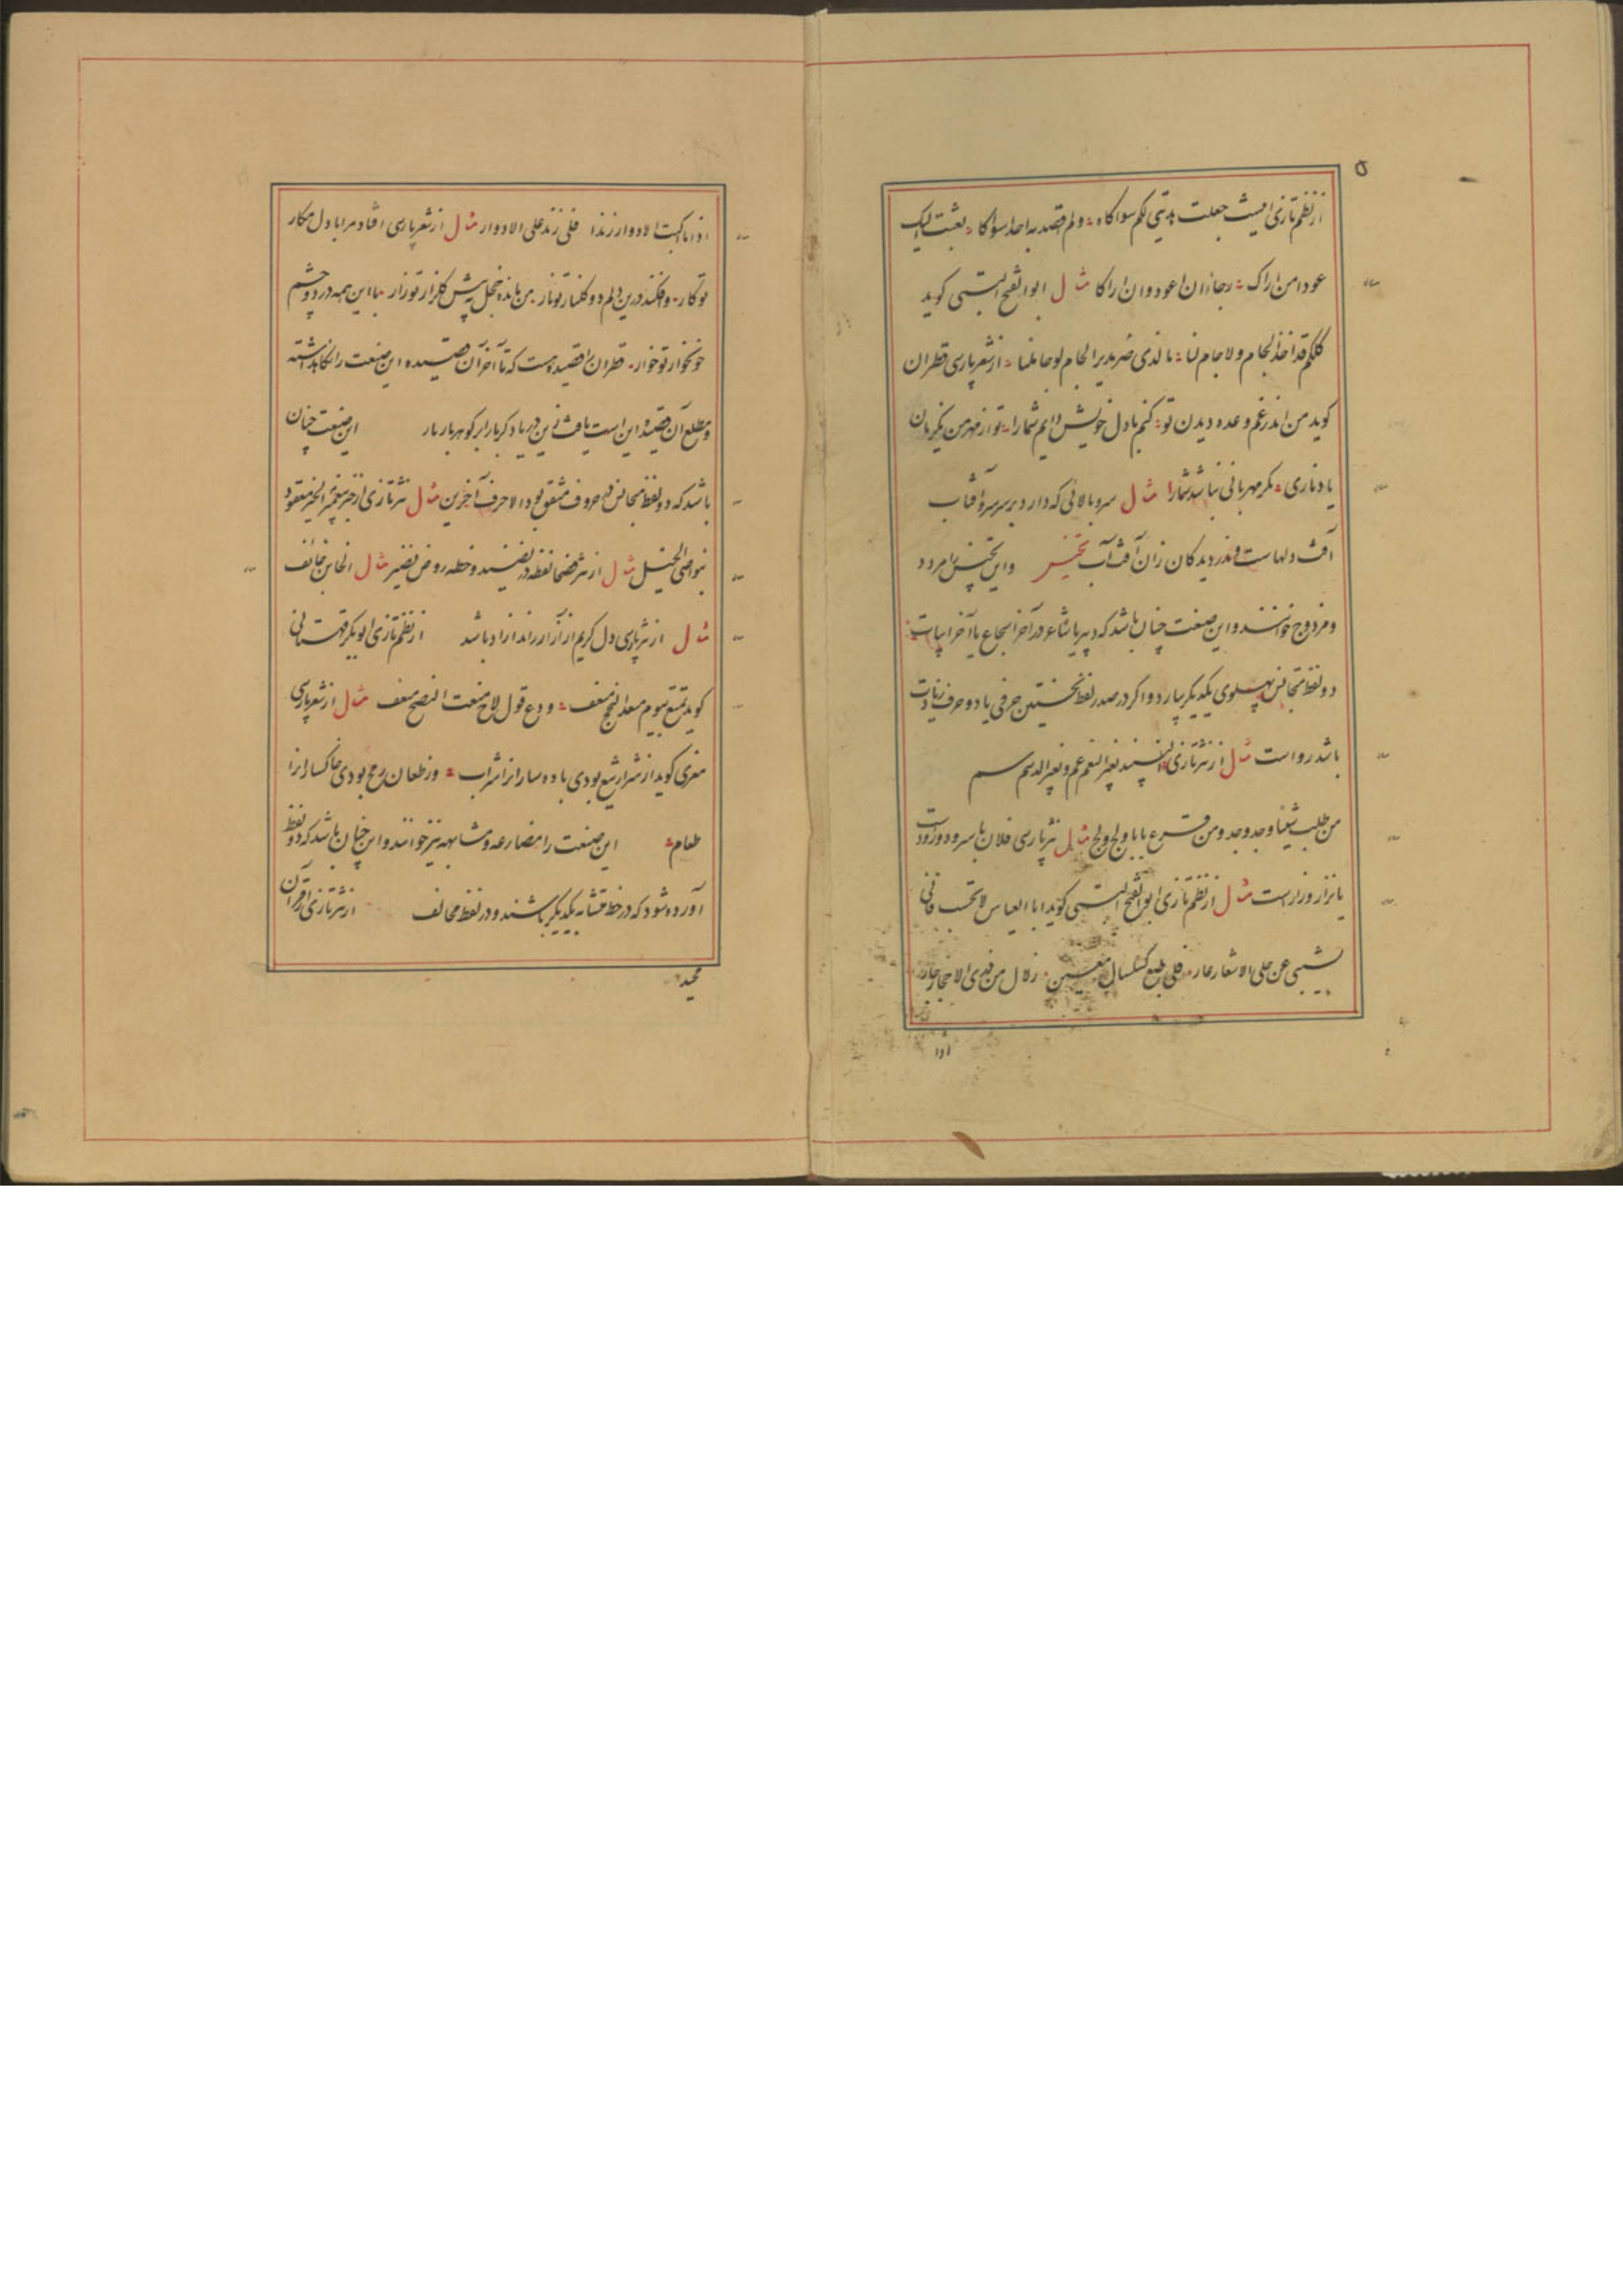 ۵
از نظم تازی ایست جعلت هدیتی لکم سواکاه ولم اقصد به احدا سواکا بعثت الیک
عودا من اراک رجاء ان اعود وان اراکا مثال ابو الفتح البستی کوید
کلکم قد اخذ الجام ولا جام لنا ما لذی ضر مدیر الجام لو جاملنا از شعر پارسی قطران
کوید من اندر غم وعده دیدن تو کنم با دل خویش دایم شمارا تو از مهر من یکزمان
یاد ناری مکر مهربانی نباشد شمارا مثال سرو بالائی که دارد بر سر سرو آفتاب
آفت دلهاست واندر دیدکان زان آفت آب تجنیس واین تجنیس را مردد
ومزدوج خوانند واین صنعت چنان باشد که دبیر یا شاعر در آخر اسجاع یا آخر ابیات
دو لفظ متجانس پهلوی یکدیکر بیارد واکر در صدر لفظ نخستین حرفی یا دو حرف زیادت
باشد رواست مثال از نثر تازی النبیذ بغیر النغم غم وبغیر الدسم سم
من طلب شیئا وجد وجد ومن قرع بابا ولج ولج مثال نثر پارسی فلان با سرود ورودست
یا نزار وزارست مثال از نظم تازی ابو الفتح البستی کوید ابا العباس لا تحسب فانی
بشیبی عن حلی الاشعار عار فلی طبع کسلسال معین زلال من ذری الاحجار جار
اذا
اذا ما اکبت الادوار زندا فلی زند علی الادوار وار مثال از شعر پارسی افتاد مرا با دل مکار
تو کار وافکند درین دلم دو کلنار تو نار من مانده خجل به پیش کلزار تو زار با این همه در دو چشم
خونخوار تو خوار قطران را قصیده هست که تا آخر آن قصیده این صنعت را نکاهداشته
ومطلع آن قصیده این است یافت زین دریا دکر بار ابر کوهر بار بار این صنعت چنان
باشد که دو لفظ متجانس در حروف متفق بود الا حرف آخرین مثال نثر تازی از خبر پیغمبر الخیر معقود
بنواصی الخیل مثال از نثر فصحا لفظه در نضید وخطه روض نضیر مثال الخاین خائف
مثال از نثر پارسی دل کریم از آزار راندازاد باشد از نظم تازی ابو بکر قهستانی
کوید تمتع بیوم مسعد النجح مسعف ودع قول لاح منعت النصح معنف مثال از شعر پارسی
معزی کوید از شرار تیغ بودی باده ساران را شراب وز طعان رمح بودی خاکساران را
طعام این صنعت را مضارعه ومشابهه نیز خوانند واین چنان باشد که دو لفظ
آورده شود که در خط متشابه یکدیکر باشند ودر لفظ مخالف از نثر تازی از قرآن
مجید